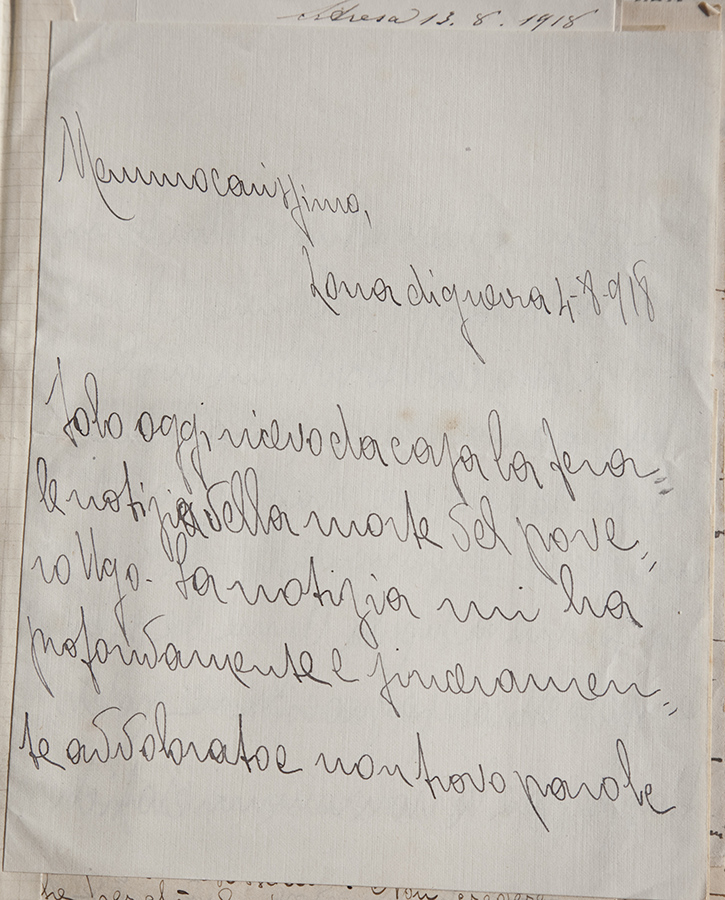 Stresa 13. 8. 1918
Memmo carissimo,
Zona di guerra 4-8-918
Solo oggi ricevo da casa la fera=
le notizia della morte del pove=
ro Ugo. La notizia mi ha
profondamente e sinceramen=
te addolorato e non trovo parole